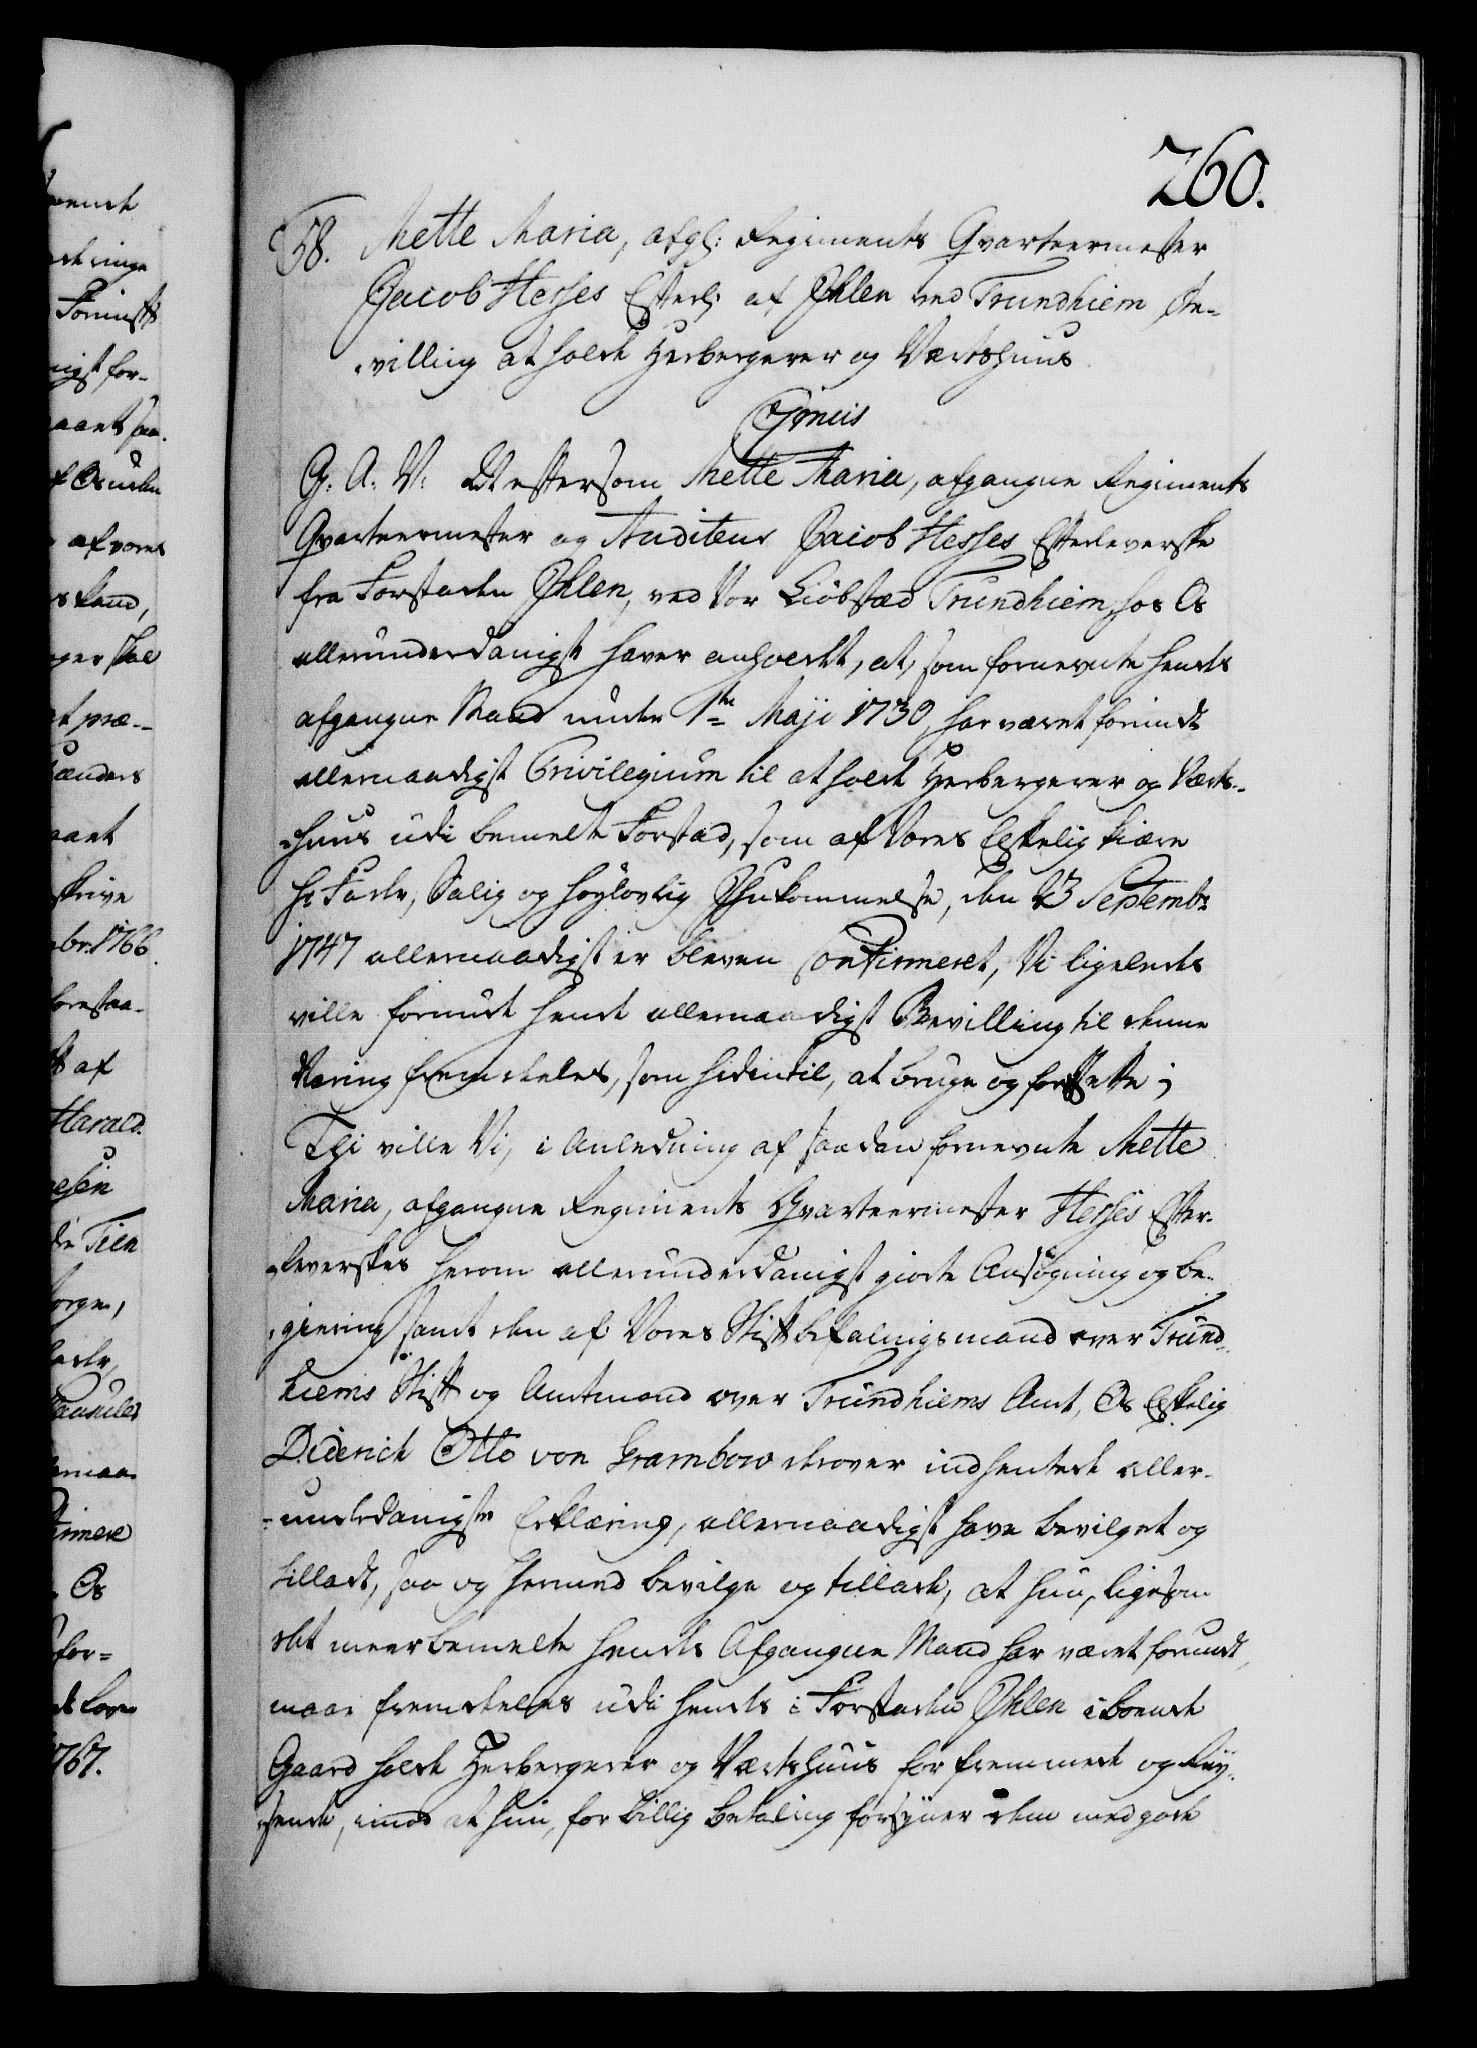 260.
58. Mette Maria, afgl: Regiments Qvarteermester
Jacob Hesses Efterl: af Ihlen ved Trundhiem Be-
villing at holde Herbergerer og Vertshuus
Christiansborg
G. A. V: Eftersom Mette Maria, afgangne Regiments
Qvarteermester og Auditeur Jacob Hesses Efterleverske
fra Forstaden Ihlen, ved Vor Kiöbstæd Trundhiem, hos Os
allerunderdanigst haver anholdt, at, som fornevnte hendes
afgangne Mand under 1te Maji 1730, har været forundt
allernaadigst Privilegium til at holde Herbergerer og Verts-
huus udi bemelte Forstad, som af Vores Elskelig kiære
Hr Fader, Salig og Høylovlig Ihukommelse, den 23 Septembr
1747 allernaadigst er bleven Confirmeret, Vi ligeledes
ville forunde hende allernaadigst Bevilling til denne
Næring fremdeeles, som hidintil, at bruge og forsette;
Thi ville Vi, i Anledning af saadan fornevnte Mette
Maria, afgangne Regiments Qvarteermester Hesses Efter-
leverskes herom allerunderdanigst giorte Ansøgning og be-
giering samt den af Vores Stiftbefalingsmand over Trund-
hiems Stift og Amtmand over Trundhiems Amt, Os Elskelig
Diderich Otto von Grambow derover indhentede aller-
underdanigste Erklæring, allernaadigst have bevilget og
tilladt, saa og hermed bevilge og tillade, at hun, ligesom
det meerbemelte hendes Afgangne Mand har været forundt,
maae fremdeles udi hendes i Forstaden Ihlen iboende
Gaard holde Herbergerer og Vertshuus for fremmede og Rey-
sende, imod at hun, for billig betaling forsyner dem med gode